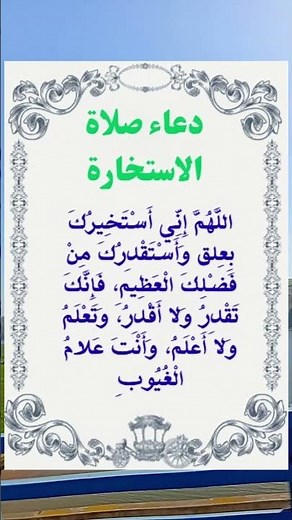 دعاء صلاة
الاستخارة
اللَّهُمَّ إِنِّي أَسْتَخِيرُكَ
بِعِلق وَأَسْتَقْدِرُكَ مِنْ
فَضْلِكَ الْعَظِيمِ، فَإِنَّكَ
تَقْدِرُ وَلا أَقْدِرُ، وَتَعْلَمُ
وَلا أَعْلَمُ، وَأَنْتَ عَلامُ
الْغُيُوبِ